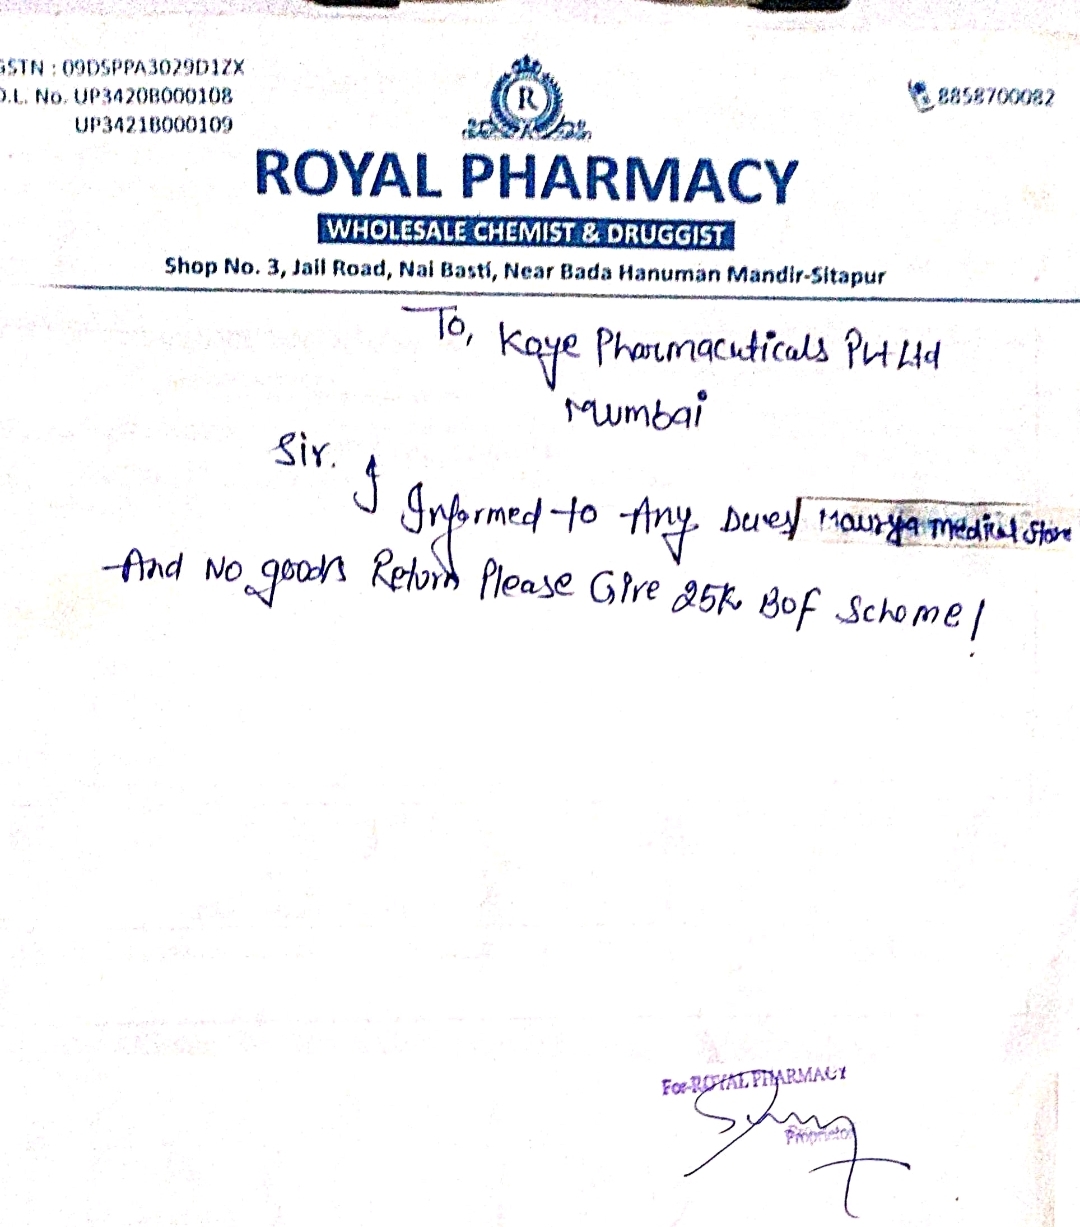 GSTN : 09DSPPA3029D1ZX
D.L. No. UP3420B000108
UP3421B000109
8858700082
R
ROYAL PHARMACY
WHOLESALE CHEMIST & DRUGGIST
Shop No. 3, Jail Road, Nai Basti, Near Bada Hanuman Mandir-Sitapur
To, Kaye Pharmacuticals Pvt Ltd
Mumbai
Sir.
I Informed to Any Dues/ Maurya medical Store
And No goods Return Please Give 25k BOF Scheme!
For-ROYAL PHARMACY
Proprietor